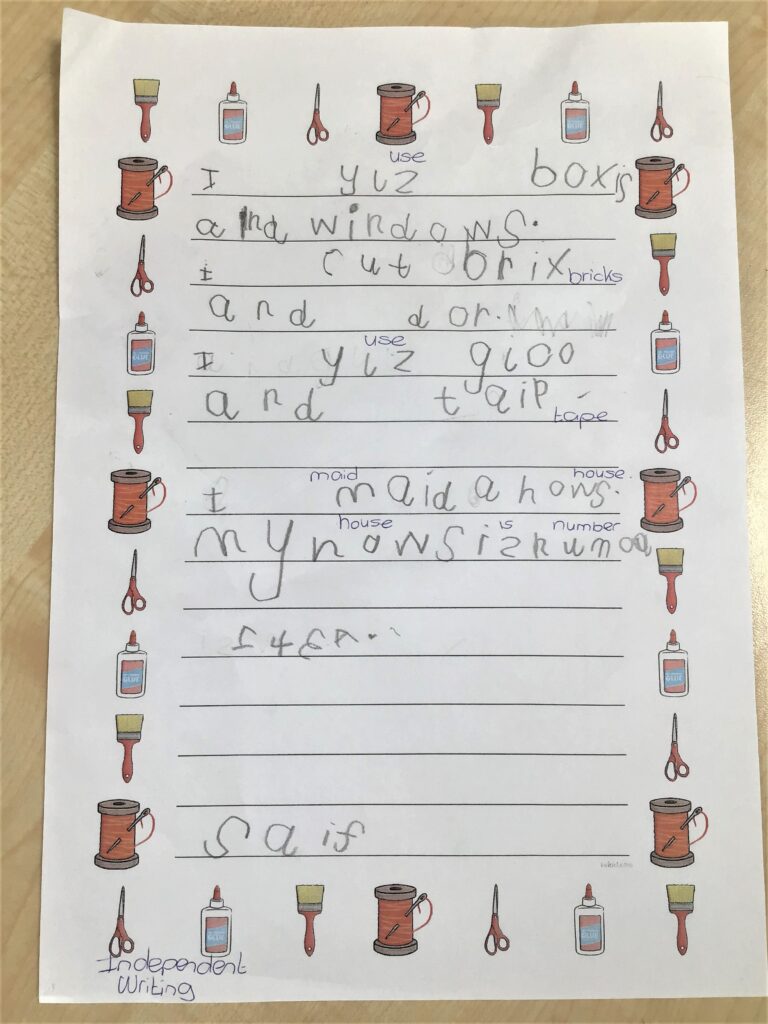 use
I yiz boxis
and windows.
I cut brix bricks
and dor.
use
I yiz gloo
and taip tape
maid house.
I maid a hows.
house is number
my hows iz numba
Saif
Independent
Writing